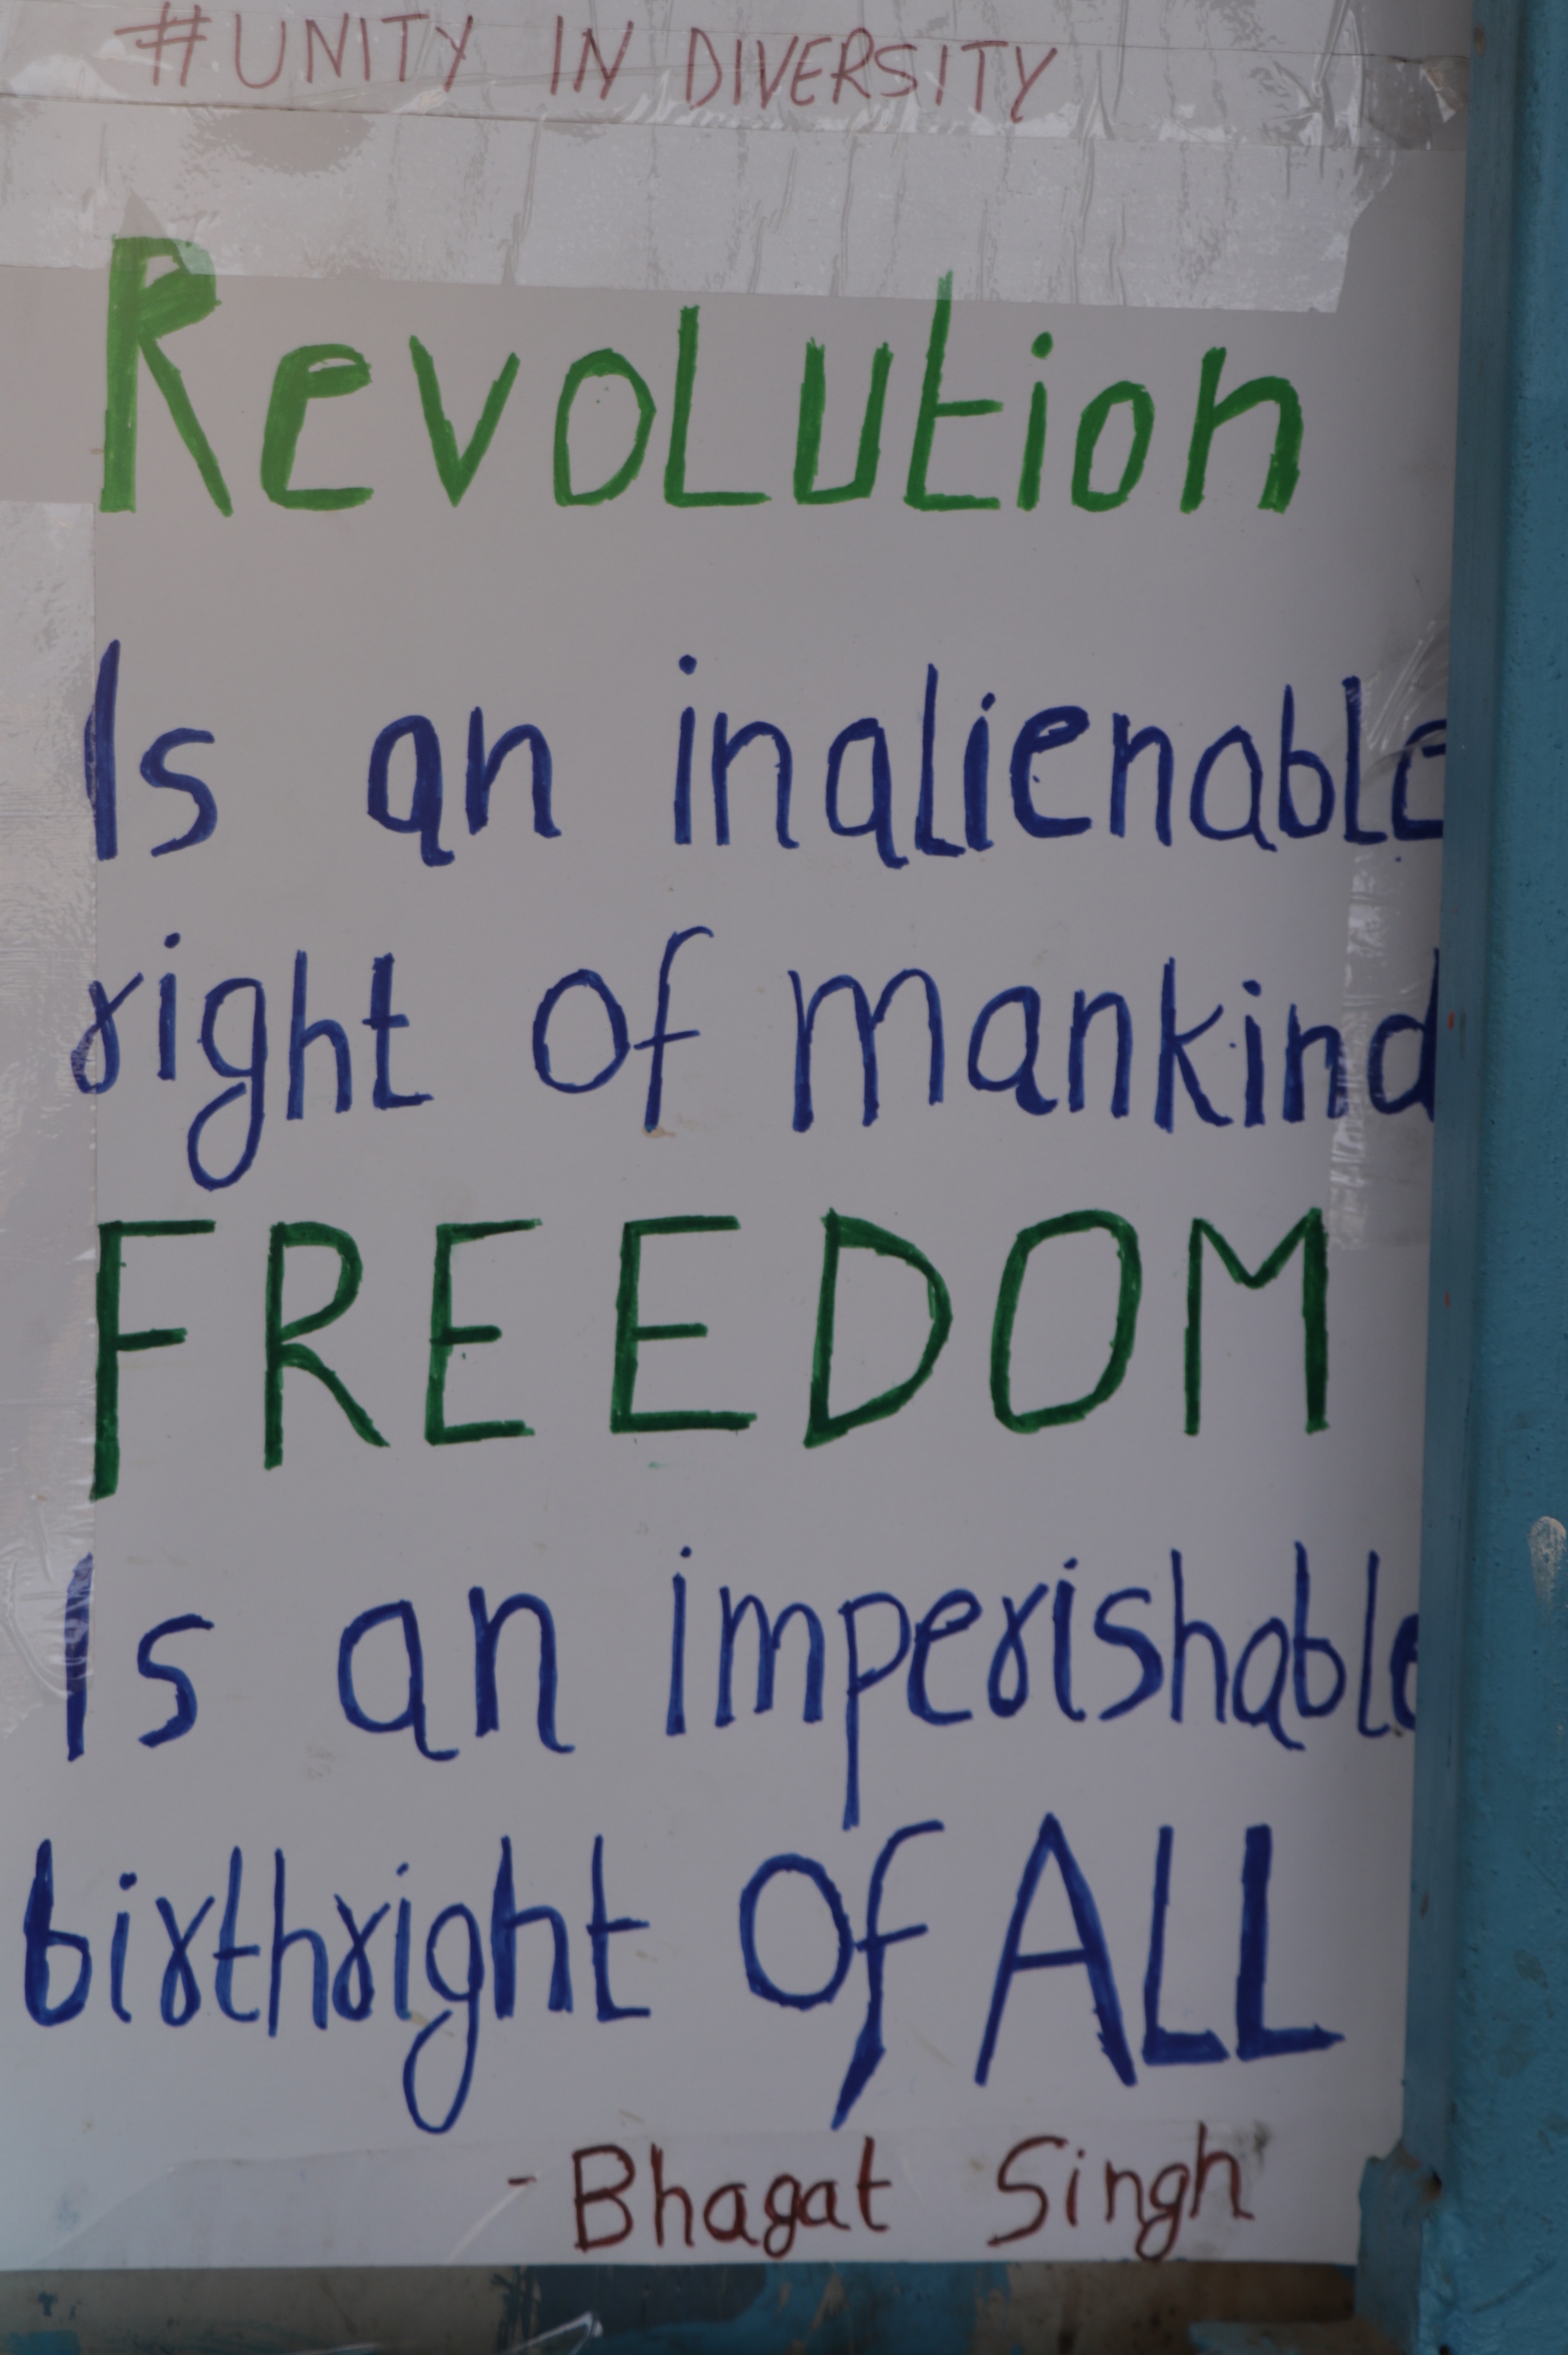 #UNITY IN DIVERSITY
RevoLution
Is an inalienable
right of mankind
FREEDOM
Is an imperishable
birthright of ALL
- Bhagat Singh